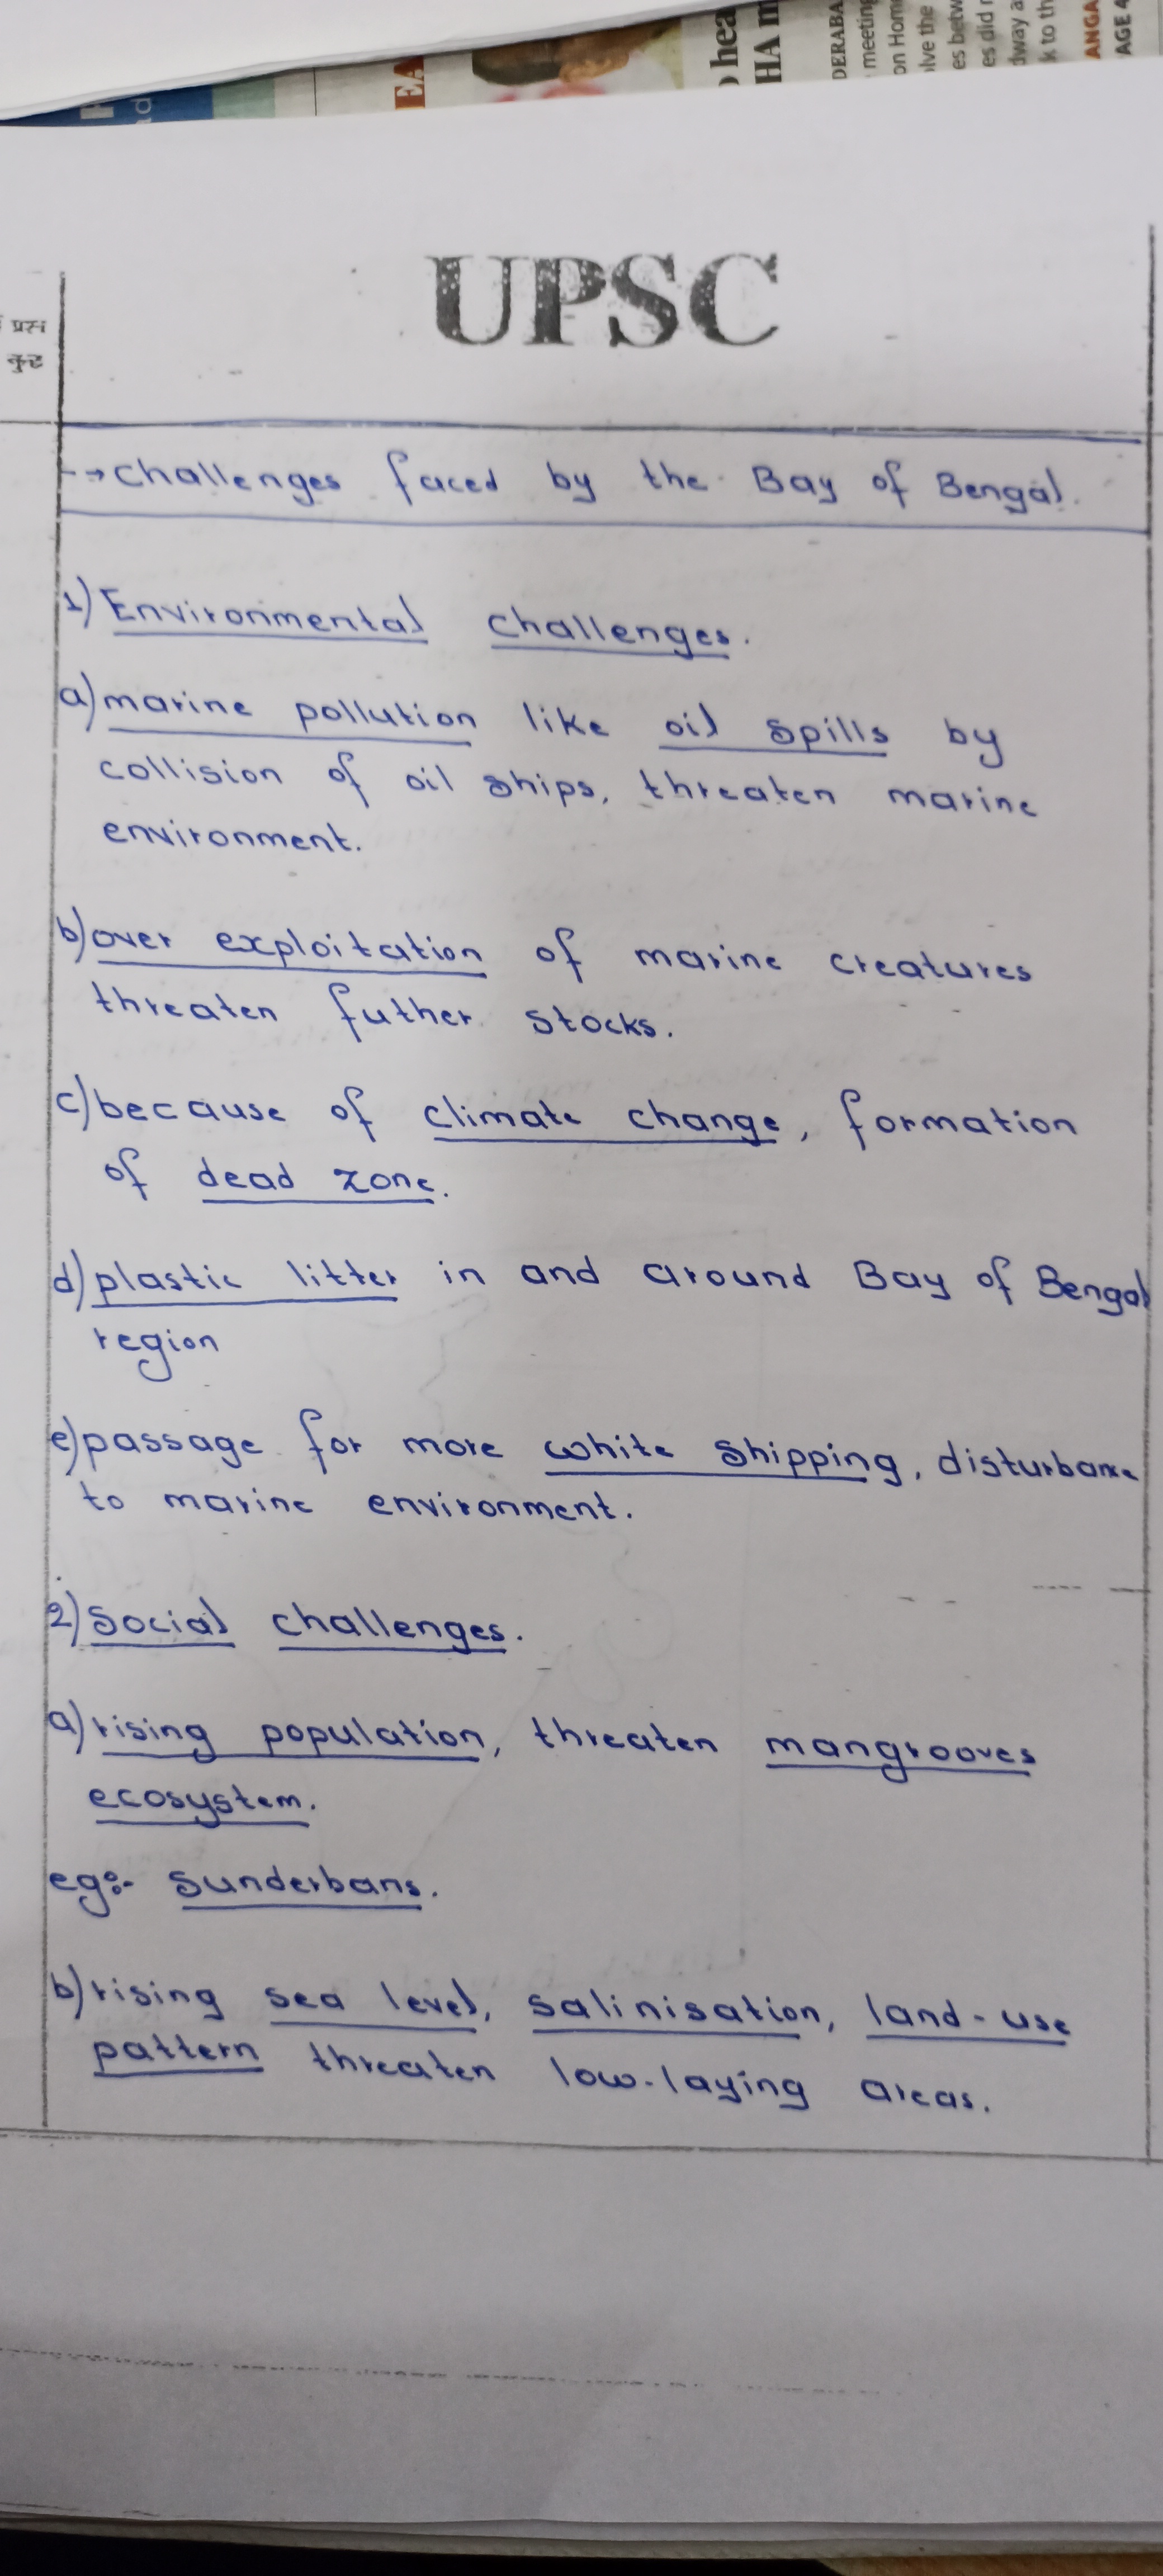 EA
hea
HA
DERABA
meeting
on Hom
lve the
es betw
es did
dway a
k to th
ANGA
AGE 4
UPSC
प्रस
कुछ
→ Challenges faced by the Bay of Bengal.
1) Environmental challenges.
a) marine pollution like oil spills by
collision of oil ships, threaten marine
environment.
b) over exploitation of marine creatures
threaten futher stocks.
c) because of climate change, formation
of dead zone.
d) plastic litter in and around Bay of Bengal
region
e) passage for more white shipping, disturbance
to marine environment.
2) Social challenges.
a) rising population, threaten mangrooves
ecosystem.
eg:- Sunderbans.
b) rising sea level, salinisation, land-use
pattern threaten low-laying areas.